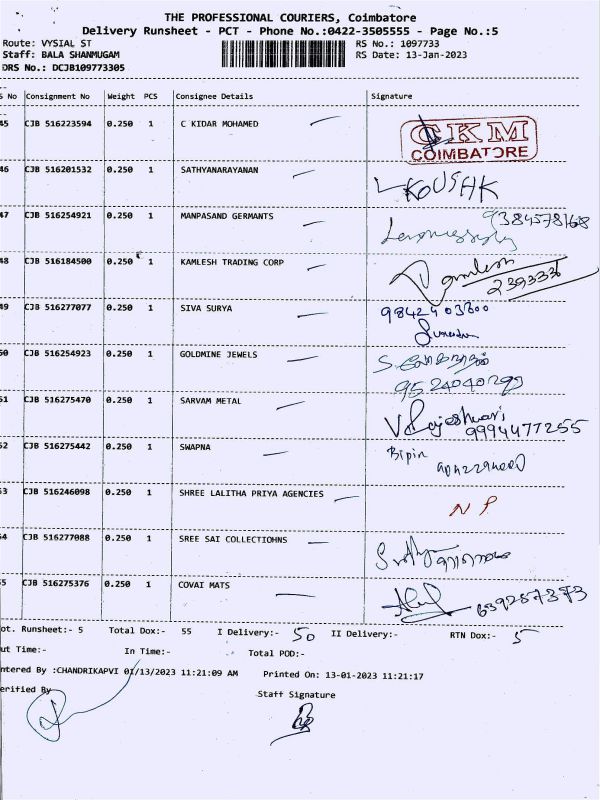 THE PROFESSIONAL COURIERS, Coimbatore
Delivery Runsheet - PCT - Phone No.:0422-3505555 - Page No.:5
Route: VYSIAL ST RS No.: 1097733
Staff: BALA SHANMUGAM RS Date: 13-Jan-2023
DRS No.: DCJB109773305
S No Consignment No Weight PCS Consignee Details Signature
45 CJB 516223594 0.250 1 C KIDAR MOHAMED CKM
COIMBATORE
46 CJB 516201532 0.250 1 SATHYANARAYANAN KOUSHK
47 CJB 516254921 0.250 1 MANPASAND GERMANTS 9384578168
48 CJB 516184500 0.250 1 KAMLESH TRADING CORP Kamlesh
2393336
49 CJB 516277077 0.250 1 SIVA SURYA 9842403600
50 CJB 516254923 0.250 1 GOLDMINE JEWELS
51 CJB 516275470 0.250 1 SARVAM METAL V Rajeshwari
9994477255
52 CJB 516275442 0.250 1 SWAPNA Bipin
53 CJB 516246098 0.250 1 SHREE LALITHA PRIYA AGENCIES N P
54 CJB 516277088 0.250 1 SREE SAI COLLECTIOHNS
55 CJB 516275376 0.250 1 COVAI MATS 6392857373
ot. Runsheet:- 5 Total Dox:- 55 I Delivery:- 50 II Delivery:- RTN Dox:- 5
ut Time:- In Time:- Total POD:-
ntered By :CHANDRIKAPVI 01/13/2023 11:21:09 AM Printed On: 13-01-2023 11:21:17
erified By Staff Signature